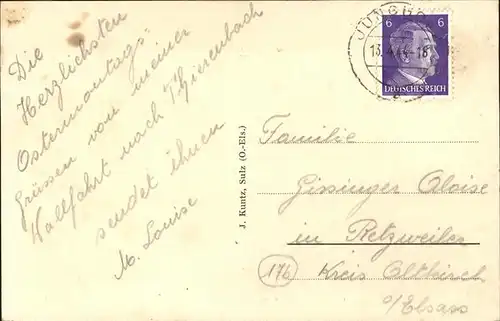 Die
Herzlichsten
Ostermontags,
Grüssen von meiner
Wallfahrt nach Thierenbach
sendet ihnen
M. Louise
J. Kuntz, Sulz (O.-Els.)
JUNGHO
13.4. -18
6 6
DEUTSCHES REICH
Familie
Gissinger Aloise
in Retzweiler
(17b) Kreis Altkirch
o/Elsass